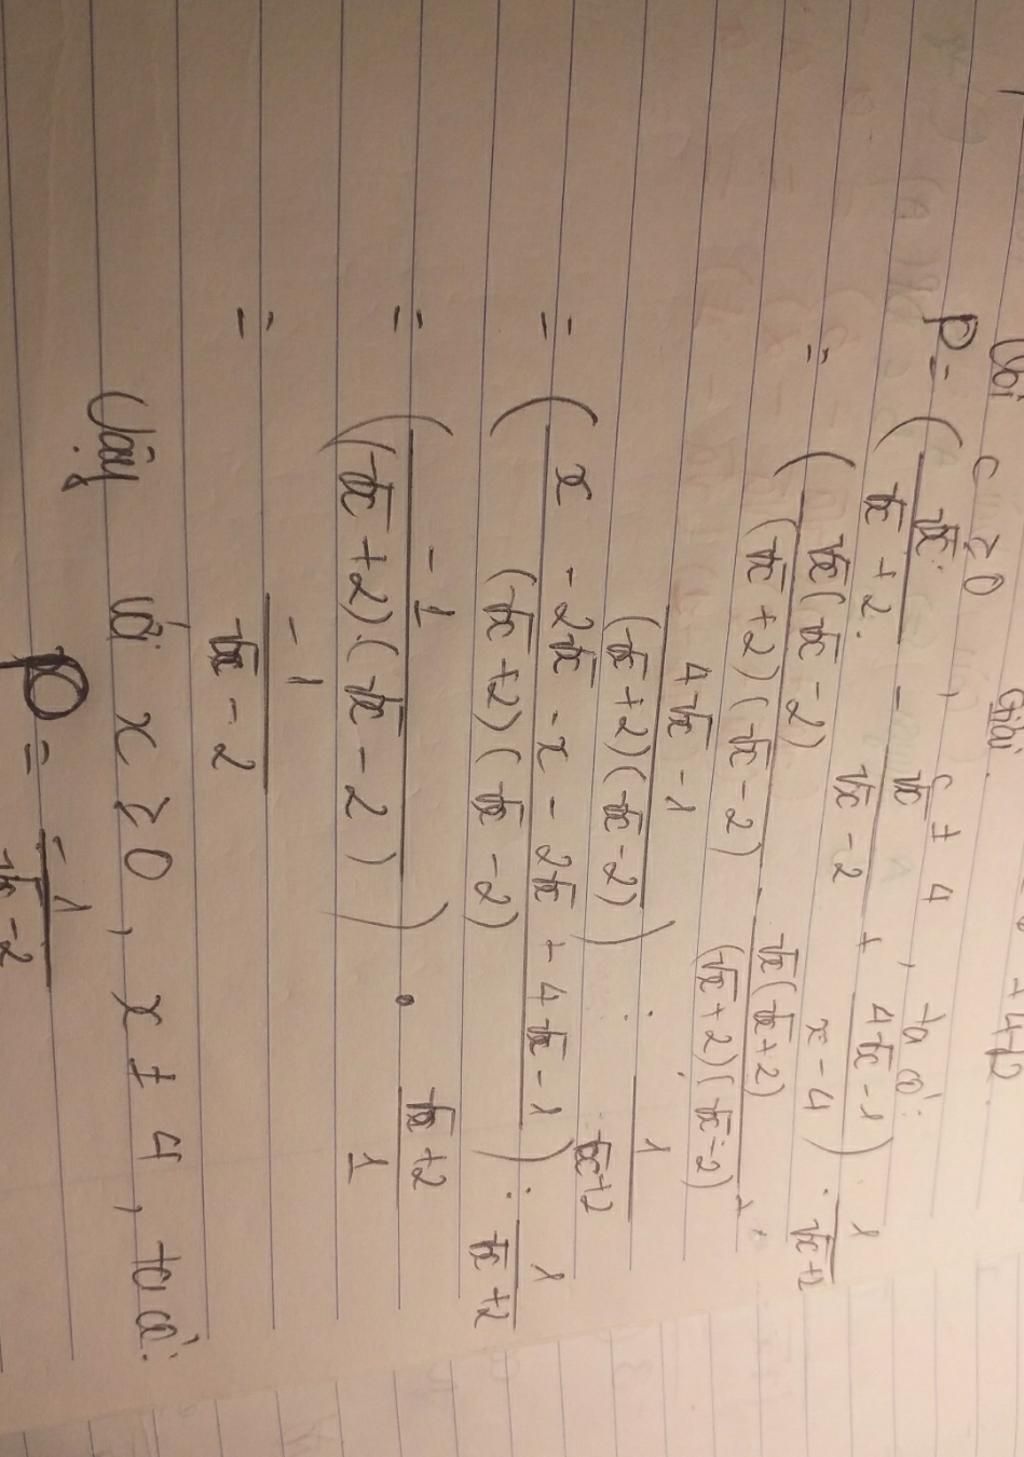 Giải
Với x ≥ 0, x ≠ 4, ta có:
P = ( √x / (√x + 2) - √x / (√x - 2) + (4√x - 1) / (x - 4) ) : 1 / (√x + 2)
= ( √x(√x - 2) / (√x + 2)(√x - 2) - √x(√x + 2) / (√x + 2)(√x - 2) +
(4√x - 1) / (√x + 2)(√x - 2) ) : 1 / (√x + 2)
= ( (x - 2√x - x - 2√x + 4√x - 1) / (√x + 2)(√x - 2) ) : 1 / (√x + 2)
= ( -1 / (√x + 2)(√x - 2) ) . (√x + 2) / 1
= -1 / (√x - 2)
Vậy với x ≥ 0, x ≠ 4, ta có:
P = -1 / (√x - 2)